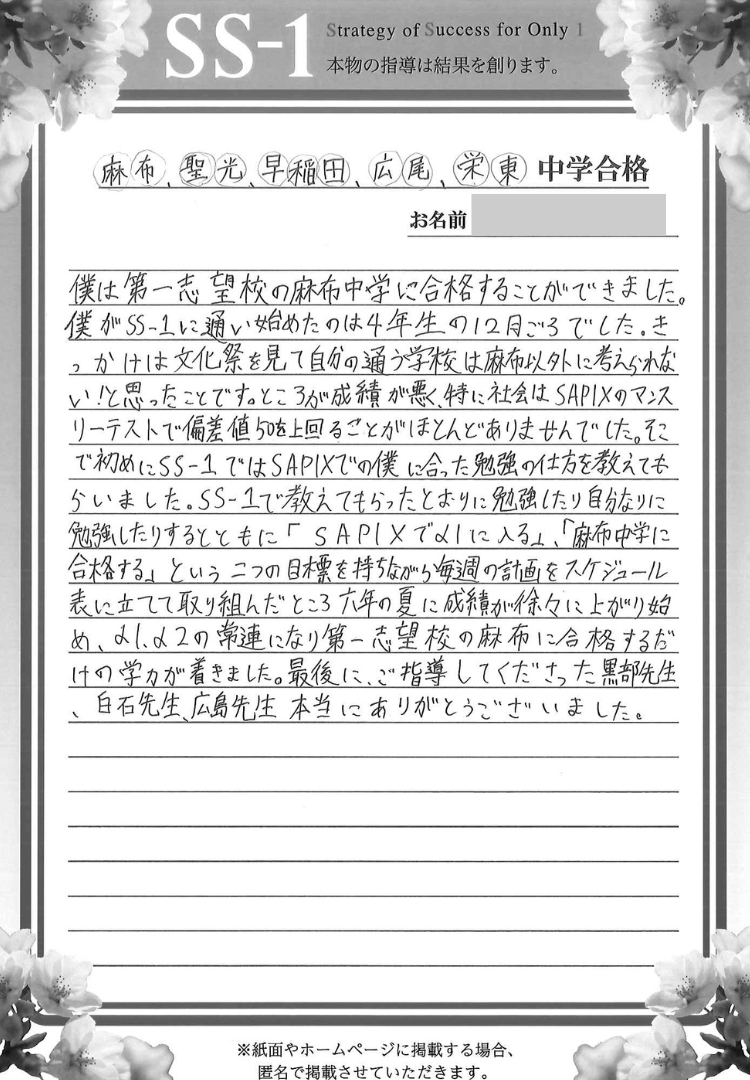 SS-1
Strategy of Success for Only 1
本物の指導は結果を創ります。
麻布、聖光、早稲田、広尾、栄東 中学合格
お名前
僕は第一志望校の麻布中学に合格することができました。
僕がSS-1に通い始めたのは4年生の12月ごろでした。き
っかけは文化祭を見て自分の通う学校は麻布以外に考えられな
い!と思ったことです。ところが成績が悪く、特に社会はSAPIXのマンス
リーテストで偏差値50を上回ることがほとんどありませんでした。そこ
で初めにSS-1ではSAPIXでの僕に合った勉強の仕方を教えても
らいました。SS-1で教えてもらったとおりに勉強したり自分なりに
勉強したりするとともに「SAPIXでα1に入る」、「麻布中学に
合格する」という二つの目標を持ちながら毎週の計画をスケジュール
表に立てて取り組んだところ六年の夏に成績が徐々に上がり始
め、α1、α2の常連になり第一志望校の麻布に合格するだ
けの学力が着きました。最後に、ご指導してくださった黒部先生
、白石先生、広島先生 本当にありがとうございました。
※紙面やホームページに掲載する場合、
匿名で掲載させていただきます。